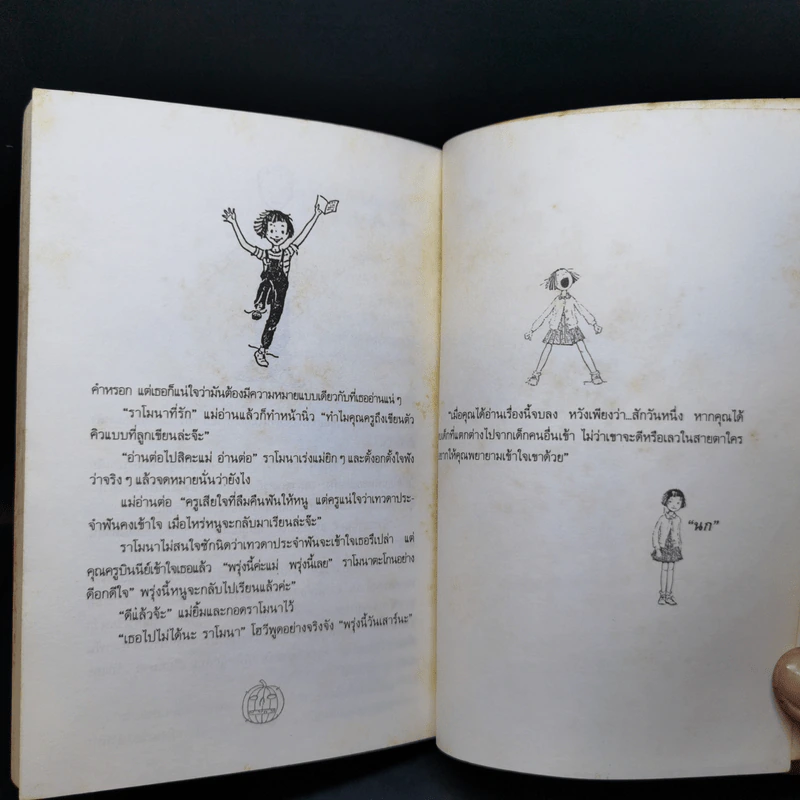 คำหรอก แต่เธอก็แน่ใจว่ามันต้องมีความหมายแบบเดียวกับที่เธออ่านแน่ ๆ
"ราโมนาที่รัก" แม่อ่านแล้วก็ทำหน้านิ่ว "ทำไมคุณครูถึงเขียนตัว
คิวแบบที่ลูกเขียนล่ะจ๊ะ"
"อ่านต่อไปสิคะแม่ อ่านต่อ" ราโมนาเร่งแม่ยิก ๆ และตั้งอกตั้งใจฟัง
ว่าจริง ๆ แล้วจดหมายนั่นว่ายังไง
แม่อ่านต่อ "ครูเสียใจที่ลืมคืนฟันให้หนู แต่ครูแน่ใจว่าเทวดาประ-
จำฟันคงเข้าใจ เมื่อไหร่หนูจะกลับมาเรียนล่ะจ๊ะ"
ราโมนาไม่สนใจซักนิดว่าเทวดาประจำฟันจะเข้าใจเธอรึเปล่า แต่
คุณครูบินนีย์เข้าใจเธอแล้ว "พรุ่งนี้ค่ะแม่ พรุ่งนี้เลย" ราโมนาตะโกนอย่าง
ดีอกดีใจ "พรุ่งนี้หนูจะกลับไปเรียนแล้วค่ะ"
"ดีแล้วจ้ะ" แม่ยิ้มและกอดราโมนาไว้
"เธอไปไม่ได้นะ ราโมนา" โฮวีพูดอย่างจริงจัง "พรุ่งนี้วันเสาร์นะ"
"เมื่อคุณได้อ่านเรื่องนี้จบลง หวังเพียงว่า...สักวันหนึ่ง หากคุณได้
เด็กที่แตกต่างไปจากเด็กคนอื่นเข้า ไม่ว่าเขาจะดีหรือเลวในสายตาใคร
ให้คุณพยายามเข้าใจเขาด้วย"
"นก"